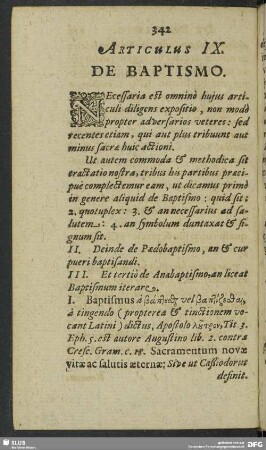 342
ARTICULUS IX.
DE BAPTISMO.
NEcessaria est omninò hujus arti-
culi diligens expositio, non modò
propter adversarios veteres: sed
recentes etiam, qui aut plus tribuunt aut
minus sacræ huic actioni.
Ut autem commoda & methodica sit
tractatio nostra, tribus his partibus præci-
puè complectemur eam, ut dicamus primò
in genere aliquid de Baptismo: quid sit:
2. quotuplex: 3. & an necessarius ad sa-
lutem: 4. an symbolum duntaxat & si-
gnum sit.
II. Deinde de Pædobaptismo, an & cur
pueri baptisandi.
III. Et tertiò de Anabaptismo, an liceat
Baptismum iterare.
I. Baptismus vel
à tingendo (propterea & tinctionem vo-
cant Latini) dictus, Apostolo λȣτρον, Tit 3.
Eph. 5. est autore Augustino lib. 2. contra
Cresc. Gram. c. Sacramentum novæ
vitæ ac salutis æternæ: Sive ut Cassiodorus
definit.
SLUB
DFG